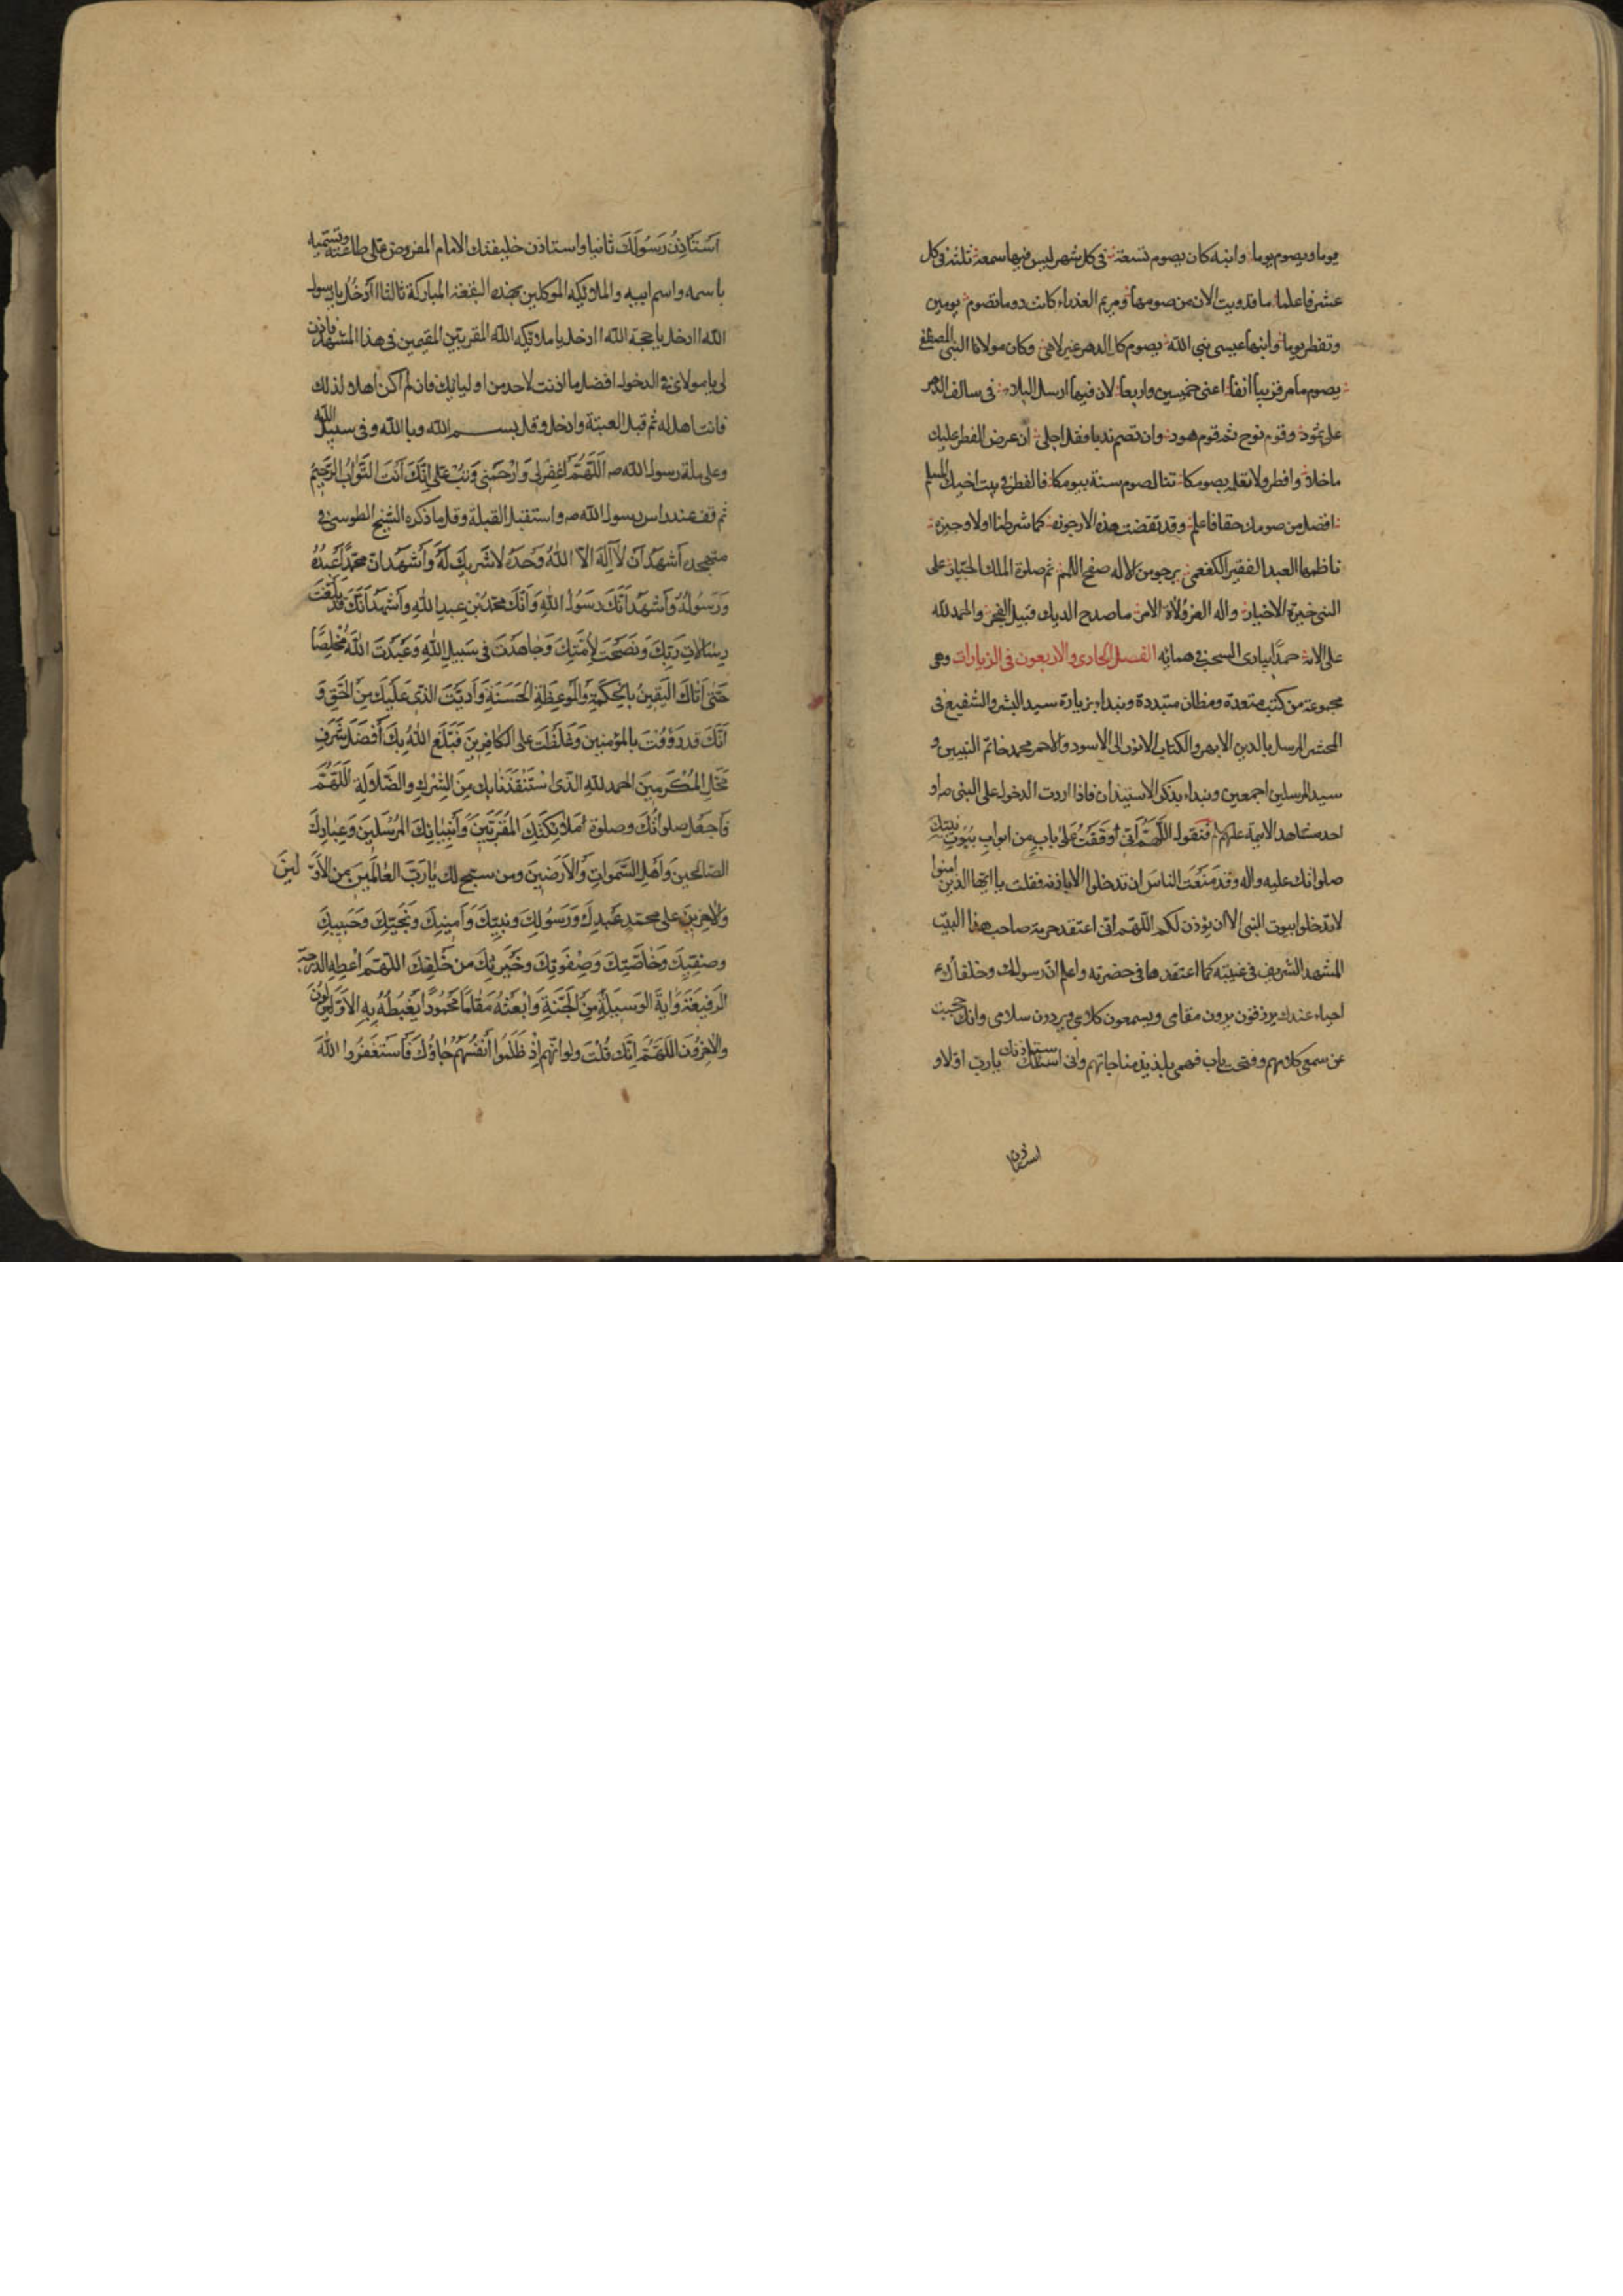 يوما ويصوم يوما وابنه كان يصوم تسعة في كل شهر ليس فيها سمعة ثلثة في كل
عشر فاعلما ما قد رويت الان من صومها ومريم العذراء كانت دوما تصوم يومين
وتفطر يوما وابنها عيسى نبي الله يصوم كل الدهر غير لاهي وكان مولانا النبي المصطفى
يصوم ما مر قريبا انفا اعنى خميسين واربعا لان فيها ارسل البلا في سالف الدهر
على ثمود وقوم نوح ثم قوم هود وان تصم ندبا فقل اجلى ان عرض الفطر عليك
ما خلا وافطر ولا تعلم بصومكا تنال صوم سنة بيومكا فالفطر في بيت اخيك المسلم
افضل من صومك حقا فاعلم وقد تقضت هذه الارجوزة كما شرطنا اولا وجيزة
ناظمها العبد الفقير الكفعمي يرجو من الاله صفح اللمم ثم صلوة الملك الجبار على
النبي خيرة الاخيار واله الغر ولاة الامر ما صدح الديك قبيل الفجر والحمد لله
على الائه حمدا يبارى السحب في همائه الفصل الحادى والاربعون في الزيارات وهى
مجموعة من كتب متعددة ومظان متبددة ونبدا بزيارة سيد البشر والشفيع فى
المحشر المرسل بالدين الابهر والكتاب الانور الى الاسود والاحمر محمد خاتم النبيين و
سيد المرسلين اجمعين ونبداء بذكر الاستيذان فاذا اردت الدخول على النبى ص او
احد مشاهد الايمة عليهم فتقول اللهم انى وقفت على باب من ابواب بيوت نبيك
صلواتك عليه واله وقد منعت الناس ان تدخلوا الا باذنه فقلت يا ايها الذين امنوا
لا تدخلوا بيوت النبى الا ان يؤذن لكم اللهم انى اعتقد حرمة صاحب هذا البيت
المشهد الشريف فى غيبته كما اعتقدها فى حضرته واعلم ان رسولك وخلفاءك ع
احياء عندك يرزقون يرون مقامى ويسمعون كلامى ويردون سلامى وانك حجبت
عن سمعى كلامهم وفتحت باب فهمى بلذيذ مناجاتهم وانى استاذنك يا رب اولا و
استاذن
اَسْتَاذِنُ رَسُولَكَ ثانيا واستاذن خليفتك الامام المفروض على طاعته وتسميه
باسمه واسم ابيه والملائكة الموكلين بهذه البقعة المباركة ثالثا اادخل يا رسول
الله اادخل يا حجة الله اادخل يا ملائكة الله المقربين المقيمين فى هذا المشهد فاذن
لى يا مولاى فى الدخول افضل ما اذنت لاحد من اوليائك فان لم اكن اهلا لذلك
فانت اهل له ثم قبل العتبة وادخل وقل بسم الله وبالله وفى سبيل الله
وعلى ملة رسول الله ص اللَّهُمَّ اغْفِرْ لى وَارْحَمْنى وَتُبْ عَلَىَّ اِنَّكَ اَنْتَ التَّوَّابُ الرَّحِيمُ
ثم قف عند راس رسول الله ص واستقبل القبلة وقل ما ذكره الشيخ الطوسى فى
متهجده اَشْهَدُ اَنْ لاَ اِلَهَ الاَّ اللهُ وَحْدَهُ لاَ شَرِيكَ لَهُ وَاَشْهَدُ ان محمدا عَبْدُهُ
وَرَسُولُهُ وَاَشْهَدُ اَنَّكَ رَسُولُ اللهِ وَاَنَّكَ مُحَمَّدُ بْنُ عبدِ اللهِ وَاَشْهَدُ اَنَّكَ قَدْ بَلَّغْتَ
رِسَالاَتِ رَبِّكَ وَنَصَحْتَ لِأُمَّتِكَ وَجَاهَدْتَ فى سَبِيلِ اللهِ وَعَبَدْتَ اللهَ مُخْلِصًا
حَتَّى اَتَاكَ الْيَقِينُ بِالْحِكْمَةِ وَالْمَوْعِظَةِ الْحَسَنَةِ وَاَدَّيْتَ الذى عَلَيْكَ مِنَ الْحَقِّ وَ
اَنَّكَ قَدْ رَؤُفْتَ بِالمؤمنين وَغَلُظْتَ على الكافِرِينَ فَبَلَغَ اللهُ بِكَ اَفْضَلَ شَرَفِ
مَحَلِّ المُكَرَّمِينَ الحمد للهِ الَّذى اسْتَنْقَذَنَا بِكَ مِنَ الشِّرْكِ والضَّلاَلَةِ اَللَّهُمَّ
فَاجْعَلْ صلواتُكَ وصلوة ملائِكَتِكَ المُقَرَّبِينَ وَاَنْبِيَائِكَ المُرْسَلِينَ وَعِبَادِكَ
الصالحين وَاَهْلِ السَّمَواتِ وَالْاَرَضِينَ ومن سبح لك يا رَبَّ العَالَمِينَ مِنَ الاَوَّلينَ
وَالاخِرِينَ على محمد عَبْدِكَ وَرَسُولِكَ ونبِيِّكَ وَاَمِينِكَ وَنَجِيِّكَ وَحَبِيبِكَ
وصفِيِّكَ وَخَاصَّتِكَ وَصِفْوَتِكَ وَخِيَرَتِكَ مِنْ خَلْقِكَ اللهُمَّ اَعْطِهِ الدرجة
الرَّفِيعَةَ وَآتِهِ الْوَسِيلَةَ مِنَ الْجَنَّةِ وَابْعَثْهُ مَقَامًا مَحْمُودًا يَغْبِطُهُ بِهِ الاَوَّلُونَ
وَالاخِرُونَ اللَّهُمَّ اِنَّكَ قُلْتَ ولو انَّهُمْ اِذْ ظَلَمُوا اَنْفُسَهُمْ جَاؤُكَ فَاسْتَغْفَرُوا اللهَ